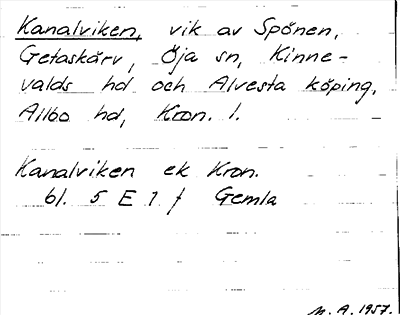 Kanalviken, vik av Spånen,
Getaskärv, Öja sn, Kinne-
valds hd och Alvesta köping,
Allbo hd, Kron. l.
Kanalviken ek Kron.
bl. 5 E 1 f Gemla
N. A. 1957.